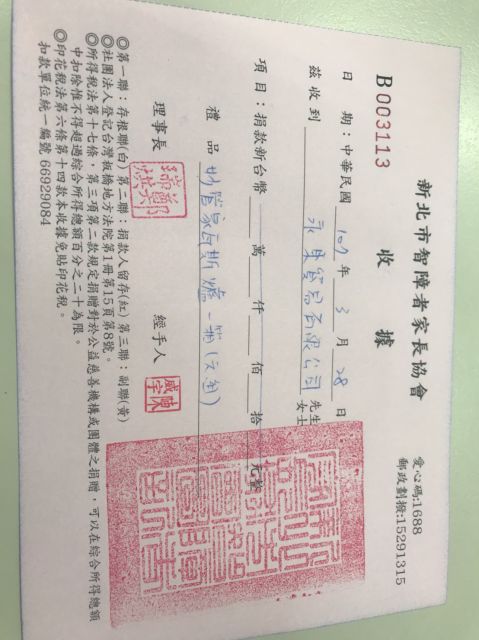 新北市智障者家長協會
收據
愛心碼:1688
郵政劃撥:15291315
B003113
日期:中華民國 107 年 3 月 28 日
茲收到 永 貿易有限公司 先生 女士
項目:捐款新台幣 萬 仟 佰 拾 元整
禮品 妙管家瓦斯爐一箱(六組)
理事長 經手人
陳威宇
◎第一聯:存根聯(白) 第二聯:捐款人留存(紅) 第三聯:副聯(黃)
◎社團法人登記台灣板橋地方法院第1冊第15頁第8號。
◎所得稅法第十七條,第三項第二款規定捐贈對於公益慈善機構或團體之捐贈,可以在綜合所得總額
中扣除惟不得超過綜合所得總額百分之二十為限。
◎印花稅法第六條第十四款本收據免貼印花稅。
扣款單位統一編號 66929084